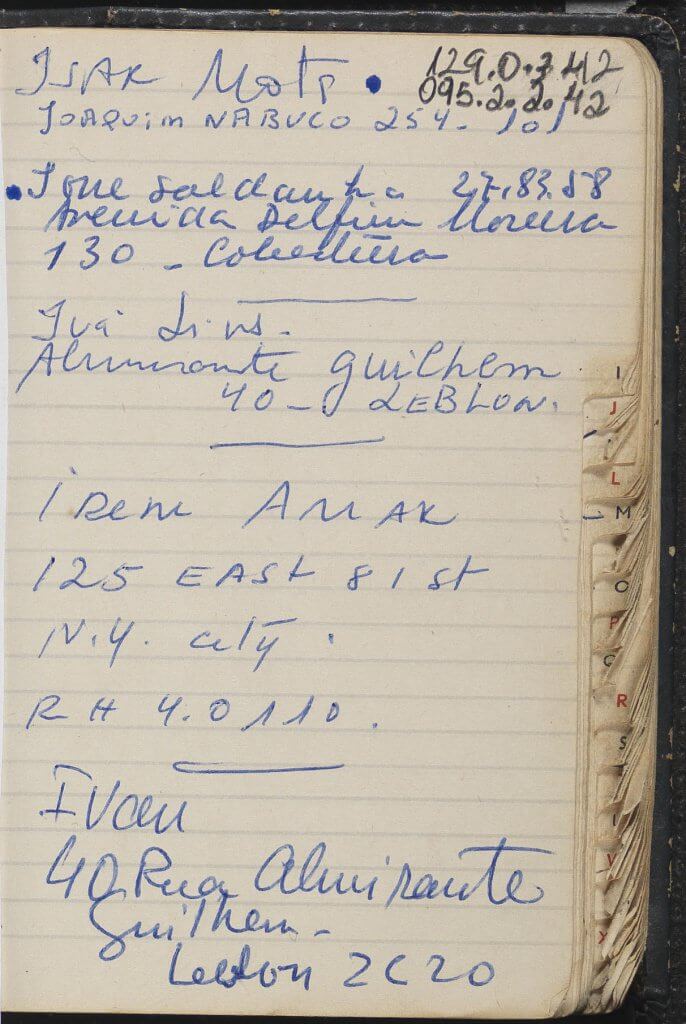 ISAK 129.0.3.42
095.2.2.42
JOAQUIM NABUCO 254 - 101
Ione Saldanha 27.83.58
Avenida Delfim Moreira
130 - Cobertura
Ivã Lins.
Almirante Guilhem
40 - LEBLON.
IRENE
125 EAST 81 St
N.Y. city.
RH 4.0110.
Ivan
40 Rua Almirante
Guilhem -
Leblon ZC20
I
J
L
M
O
P
R
S
V
X